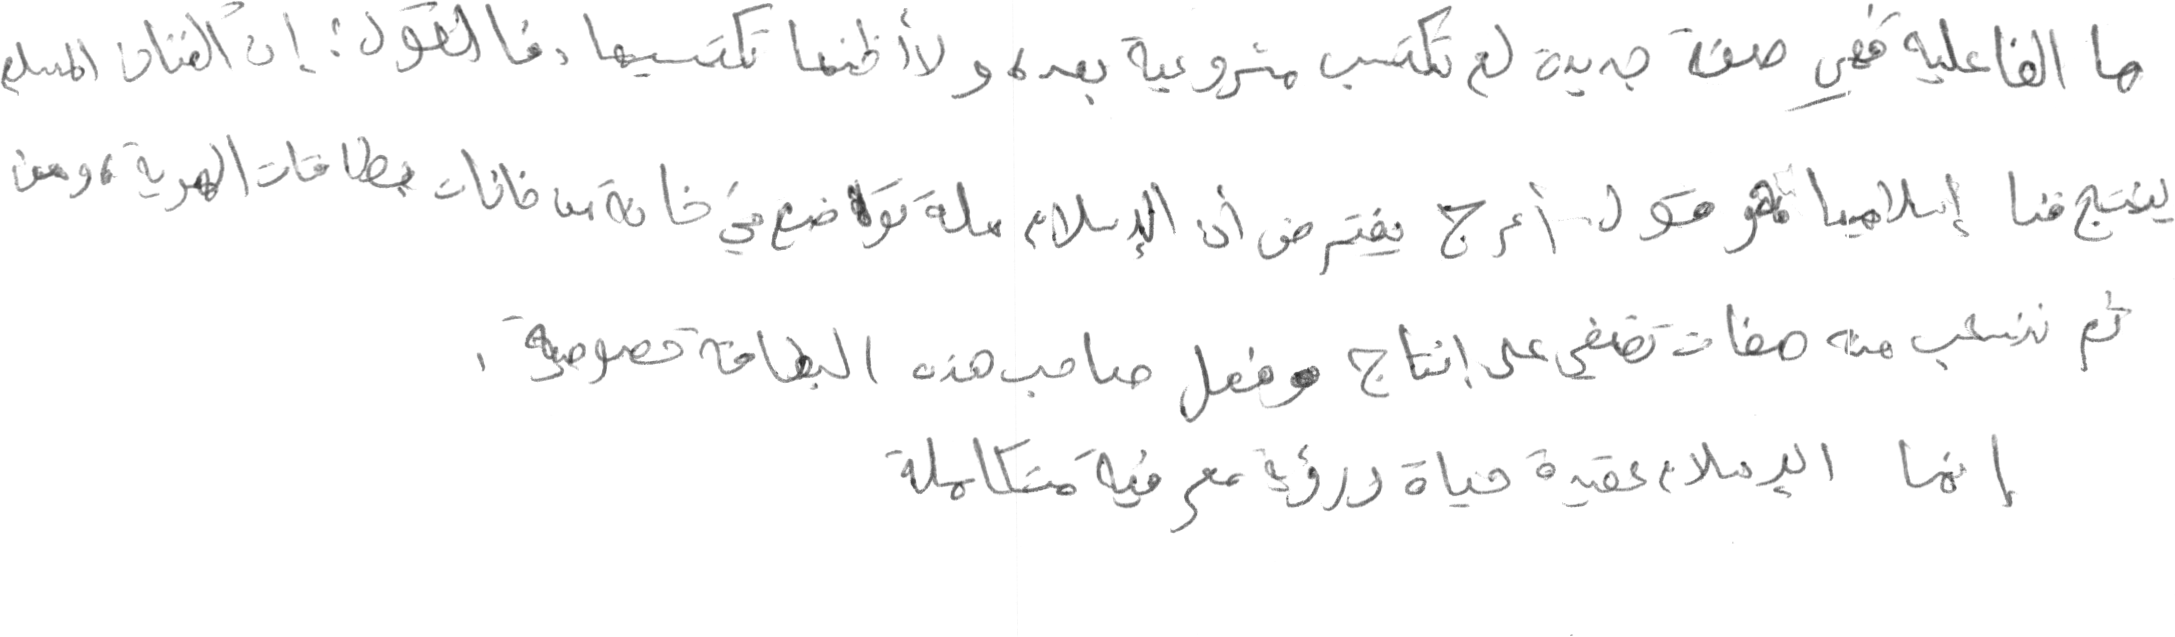 ما الفاعلية فهي صفة جديدة لم تكتسب مشروعية بعد، ولا أظنها تكتسبها. فالقول: إن الفنان المسلم
ينتج فنا إسلاميا فهو قول أعرج يفترض أن الإسلام ملة توضع في خانة من خانات بطاقات الهوية، ومن
ثم تنسحب منه صفات تضفي على إنتاج وفعل صاحب هذه البطاقة خصوصية.
إنما الإسلام عقيدة حياة ورؤية معرفية متكاملة